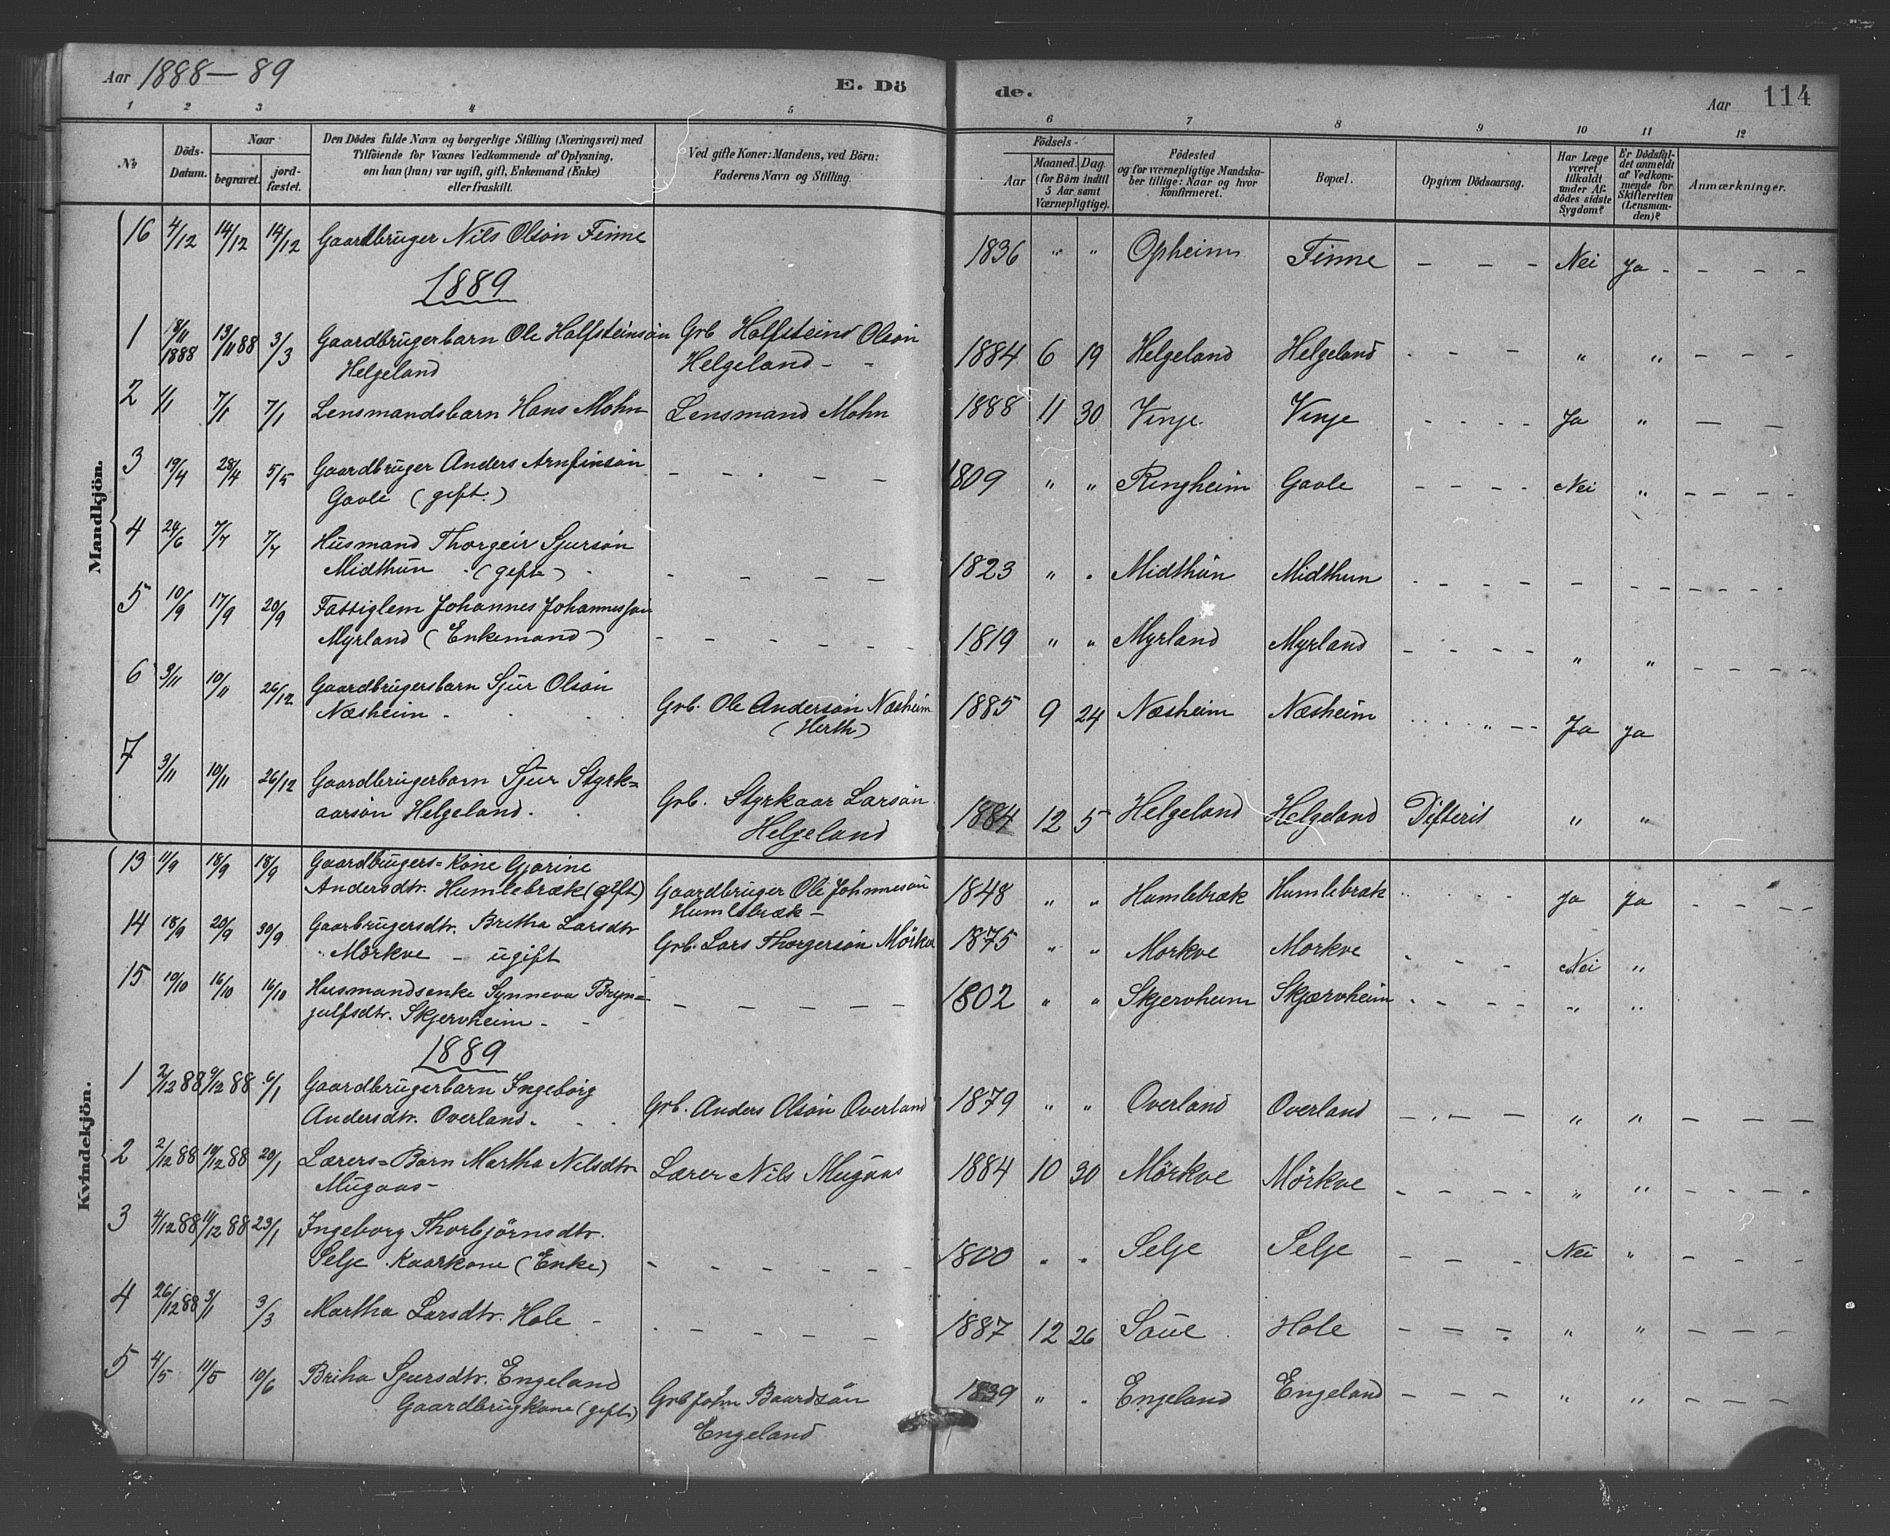 Aar 1888-89
E. Dö
de.
Aar
114
1 2 3 4 5 6 7 8 9 10 11 12
No
Döds-
Datum.
Naar
begravet.
jord-
fæstet.
Den Dödes fulde Navn og borgerlige Stilling (Næringsvei) med
Tilföiende for Voxnes Vedkommende af Oplysning,
om han (hun) var ugift, gift, Enkemand (Enke)
eller fraskilt.
Ved gifte Koner: Mandens, ved Börn:
Faderens Navn og Stilling.
Födsels-
Aar
Maaned. Dag.
(for Börn indtil
5 Aar samt
Værnepligtige).
Födested
og for værnepligtige Mandska-
ber tillige: Naar og hvor
Konfirmeret.
Bopæl.
Opgiven Dödsaarsag.
Har Læge
været
tilkaldt
under Af-
dödes sidste
Sygdom?
Er Dödsfal-
det anmeldt
af Vedkom-
mende for
Skifteretten
(Lensman-
den)?
Anmærkninger.
Mandkjön.
16 4/12 14/12 14/12 Gaardbruger Nils Olsön Finne 1836 " " Opheim Finne - - - Nei Ja - - - -
1889
1 18/11 1888 13/11 88 3/3 Gaardbrugerbarn Ole Halfsteinsön Grb Halfstein Olsön 1884 6 19 Helgeland Helgeland - - - " " - - -
Helgeland Helgeland - -
2 1/1 7/1 7/1 Lensmandsbarn Hans Mohn Lensmand Mohn 1888 11 30 Vinje Vinje - - - - Ja " - -
3 19/4 28/4 5/5 Gaardbruger Anders Arnfinsön - - - - - 1809 " " Ringheim Gavle - - - - Nei " - - - -
Gavle (gift.)
4 24/6 7/7 7/7 Husmand Thorgeir Sjursön
Midthun (gift) - - - - 1823 " " Midthun Midthun - - - - - - - - - - -
5 10/9 17/9 20/9 Fattiglem Johannes Johannessön
Myrland (Enkemand) - - - - - - 1819 " " Myrland Myrland - - - - " " - - - -
6 3/11 10/11 26/12 Gaardbrugersbarn Sjur Olsön Grb. Ole Andersön Næsheim 1885 9 24 Næsheim Næsheim Ja Ja
Næsheim (Herth)
7 3/11 10/11 26/12 Gaardbrugerbarn Sjur Styrk=
aarsön Helgeland. Grb. Styrkaar Larsön 1884 12 5 Helgeland Helgeland Difterit " "
Helgeland
Kvindekjön.
13 11/9 18/9 18/9 Gaardbrugers=Kone Gjorine
Andersdtr. Humlebræk (gift) Gaardbruger Ole Johnnesön 1848 " " Humlebræk Humlebræk - - - - Ja Ja - - - -
Humlebræk -
14 18/9 20/9 30/9 Gaarbrugersdtr. Britha Larsdtr Grb. Lars Thorgersön Mörkve 1875 " " Morkve Morkve - - - Nei "
Mörkve - ugift
15 10/10 16/10 16/10 Husmandsenke Synneva Bryn= - - - - - 1802 " " Skjervheim Skjærvheim - - - - " "
julfsdtr. Skjervheim -
1889
1 2/12 88 9/12 88 6/1 Gaardbrugerbarn Ingeborg
Andersdtr. Overland. Grb. Anders Olsön Overland 1879 " " Overland Overland - - - - " " - - -
2 2/12 88 10/12 88 20/1 Lærers=Barn Martha Nilsdtr. Lærer Nils Mugaas 1884 10 30 Mörkve Mörkve - - - - " " - - - -
Mugaas -
3 4/12 88 11/12 88 23/1 Ingeborg Thorbjörnsdtr.
Selje Kaarkone (Enke) - - - - - - 1800 " " Selje Selje - - - Nei " - - -
4 26/12 88 3/1 3/3 Martha Larsdtr. Hole - - - - - 1887 12 26 Saue Hole - - - " " - - -
5 4/5 11/5 10/6 Britha Sjursdtr. Engeland
Gaardbrugkone (gift) Grb John Baardsön 1839 " " Engeland Engeland - - - - " " - - -
Engeland